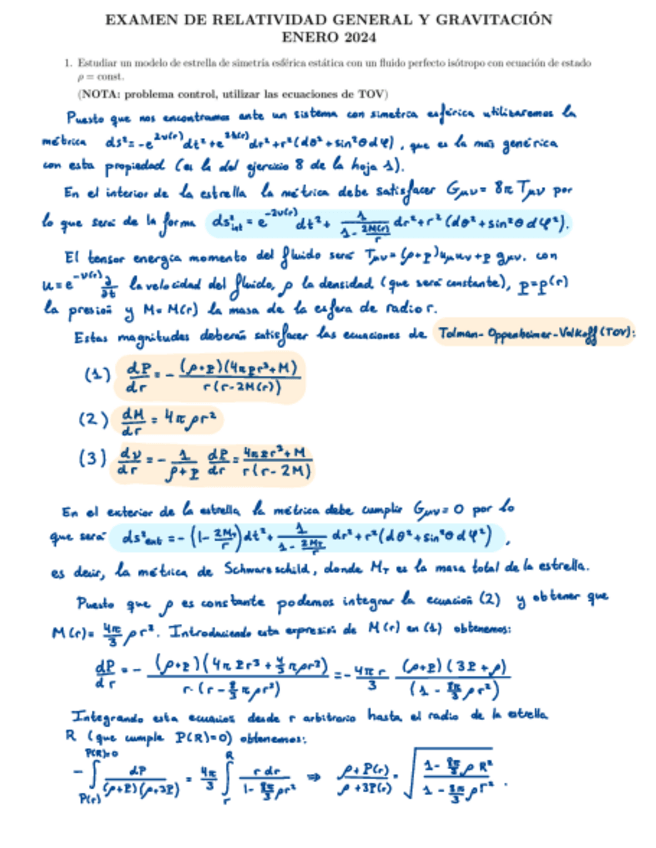 EXAMEN DE RELATIVIDAD GENERAL Y GRAVITACIÓN
ENERO 2024
1. Estudiar un modelo de estrella de simetría esférica estática con un fluido perfecto isótropo con ecuación de estado
ρ = const.
(NOTA: problema control, utilizar las ecuaciones de TOV)
Puesto que nos encontramos ante un sistema con simetría esférica utilizaremos la
métrica ds² = -e^{2ν(r)} dt² + e^{2λ(r)} dr² + r²(dθ² + sin²θ dφ), que es la más genérica
con esta propiedad (es la del ejercicio 8 de la hoja 1).
En el interior de la estrella la métrica debe satisfacer Gμν = 8π Tμν por
lo que será de la forma ds²int = e^{-2ν(r)} dt² + 1/(1 - 2M(r)/r) dr² + r²(dθ² + sin²θ dφ²).
El tensor energía momento del fluido será Tμν = (ρ+p)uμuν + p gμν. con
u = e^{-ν(r)} ∂/∂t la velocidad del fluido, ρ la densidad (que será constante), p = p(r)
la presión y M = M(r) la masa de la esfera de radio r.
Estas magnitudes deberán satisfacer las ecuaciones de Tolman-Oppenheimer-Volkoff (TOV):
(1) dP/dr = - (ρ+p)(4πpr³+M) / r(r-2M(r))
(2) dM/dr = 4πρr²
(3) dν/dr = - 1/(ρ+p) dP/dr = (4πpr³+M) / r(r-2M)
En el exterior de la estrella la métrica debe cumplir Gμν = 0 por lo
que será ds²ext = -(1 - 2M_T/r)dt² + 1/(1 - 2M_T/r) dr² + r²(dθ² + sin²θ dφ²),
es decir, la métrica de Schwarzschild, donde M_T es la masa total de la estrella.
Puesto que ρ es constante podemos integrar la ecuación (2) y obtener que
M(r) = 4π/3 ρr³. Introduciendo esta expresión de M(r) en (1) obtenemos:
dP/dr = - (ρ+p)(4πpr³ + 4/3 πρr³) / r·(r - 8/3 πρr³) = - 4πr/3 (ρ+p)(3p+ρ) / (1 - 8π/3 ρr²)
Integrando esta ecuación desde r arbitrario hasta el radio de la estrella
R (que cumple P(R)=0) obtenemos:
-∫_{P(r)}^{P(R)=0} dP/((ρ+P)(ρ+3P)) = 4π/3 ∫_r^R r dr/(1 - 8π/3 ρr²) ⇒ (ρ+P(r))/(ρ+3P(r)) = √((1 - 8π/3 ρR²)/(1 - 8π/3 ρr²)).